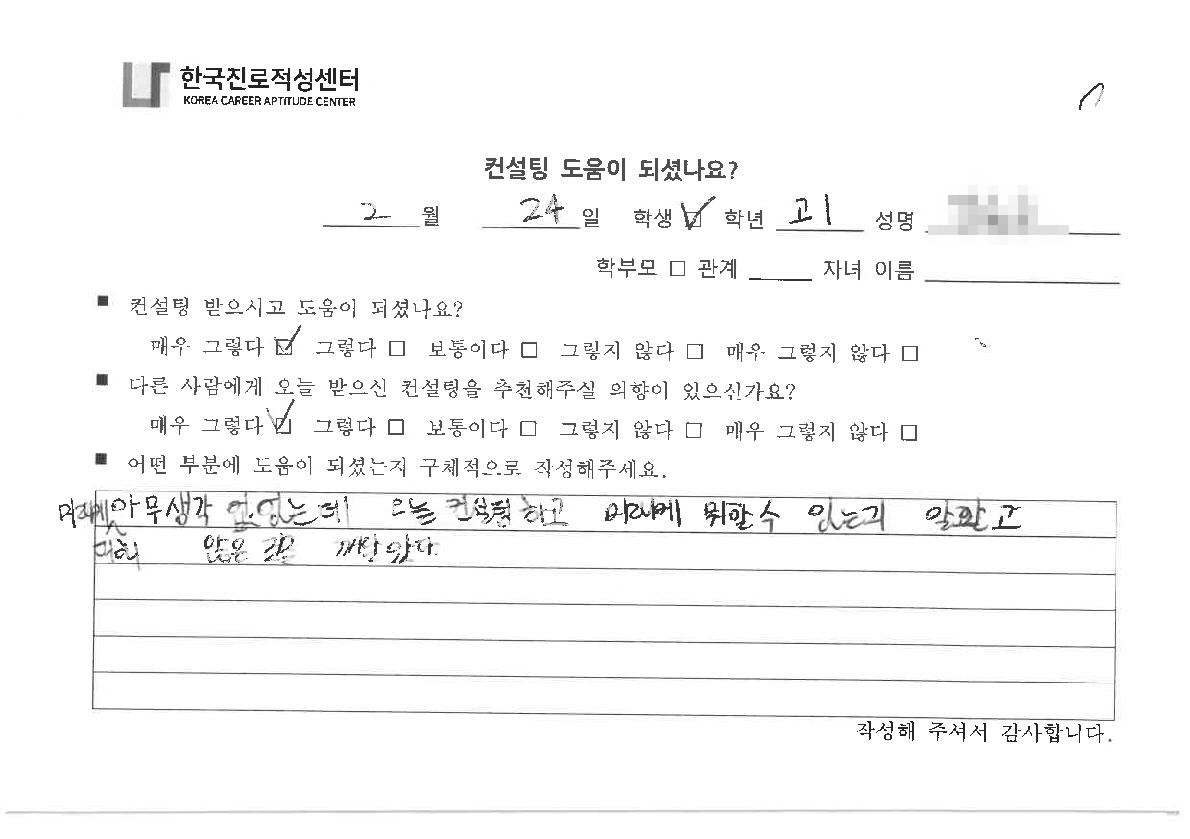 한국진로적성센터
KOREA CAREER APTITUDE CENTER
컨설팅 도움이 되셨나요?
2 월 24 일 학생 ☑ 학년 고1 성명
학부모 □ 관계 자녀 이름
■ 컨설팅 받으시고 도움이 되셨나요?
매우 그렇다 ☑ 그렇다 □ 보통이다 □ 그렇지 않다 □ 매우 그렇지 않다 □
■ 다른 사람에게 오늘 받으신 컨설팅을 추천해주실 의향이 있으신가요?
매우 그렇다 ☑ 그렇다 □ 보통이다 □ 그렇지 않다 □ 매우 그렇지 않다 □
■ 어떤 부분에 도움이 되셨는지 구체적으로 작성해주세요.
미래에 아무생각 없었는데 오늘 컨설팅하고 미래에 뭐할수 있는지
대해 않은 것을
작성해 주셔서 감사합니다.